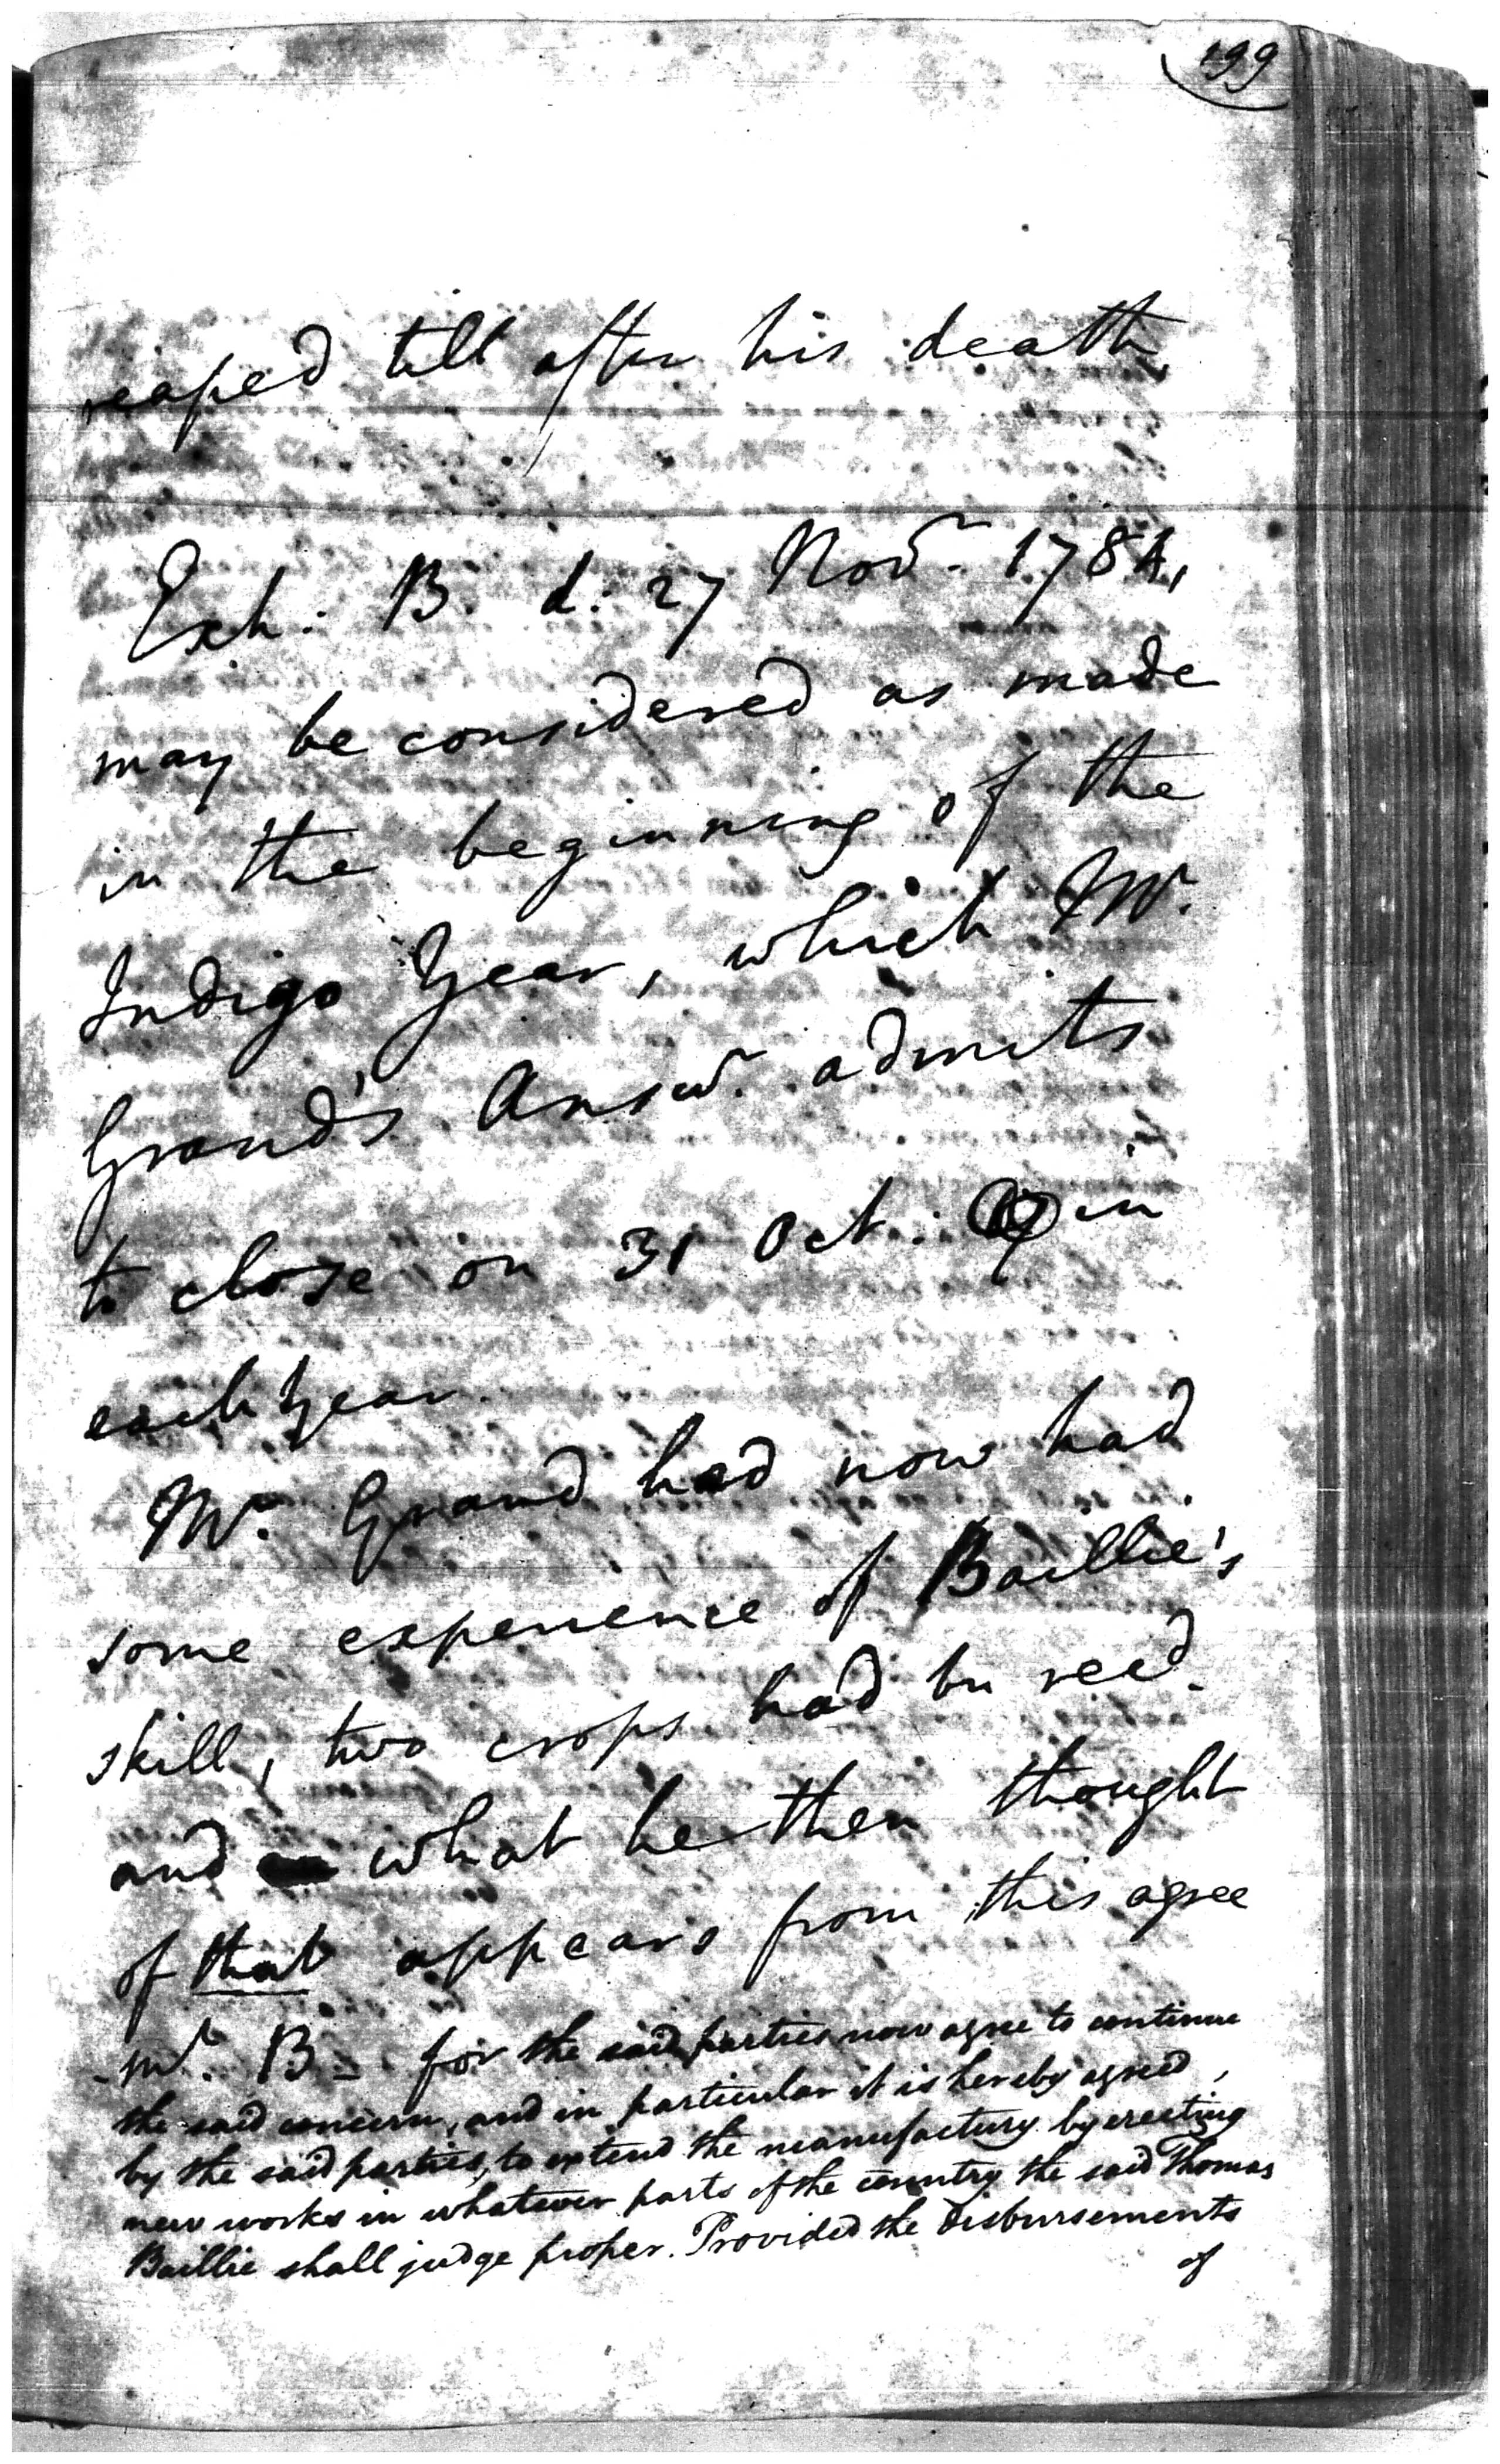 199
reaped till after his death
Exh: B. d: 27 Novr. 1784,
may be considered as made
in the beginning of the
Indigo Year, which Mr.
Grand's Answr. admits
to close on 31 Oct: in
each year.
Mr. Grand had now had
some experience of Baillie's
skill, two crops had bn recd.
and what he then thought
of that appears from this agree
-mt. B - for the said parties now agree to continue
the said concern, and in particular it is hereby agreed,
by the said parties, to extend the manufactury by erecting
new works in whatever parts of the country the said Thomas
Baillie shall judge proper. Provided the disbursements
of